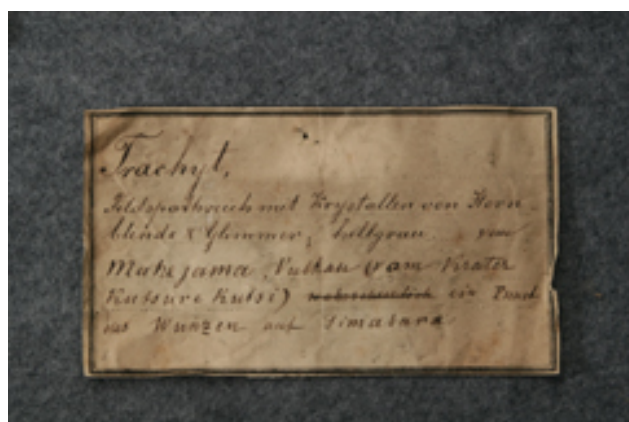 Trachyt,
Feldspathreich mit Krystallen von Horn-
blende & Glimmer, hellgrau vom
Vulkan (vam Krater
Kutsure Kutsi) ein
des Wunzen auf Simabara